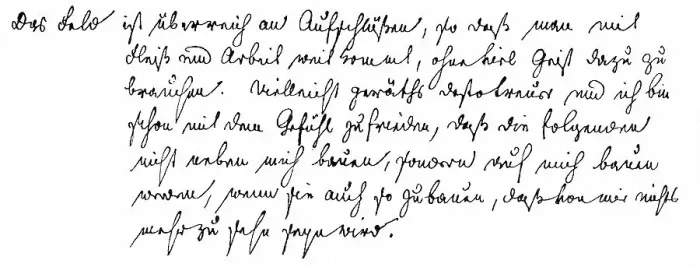 Das Feld ist überreich an Aufschlüßen, so daß man mit
Fleiß und Arbeit weit kommt, ohne viel Geist dazu zu
brauchen. Vielleicht geräths desto treuer und ich bin
schon mit dem Gefühl zufrieden, daß die folgenden
nicht neben mich bauen, sondern auf mich bauen
werden, wenn sie auch so zubauen, daß von mir nichts
mehr zu sehn seyn wird.